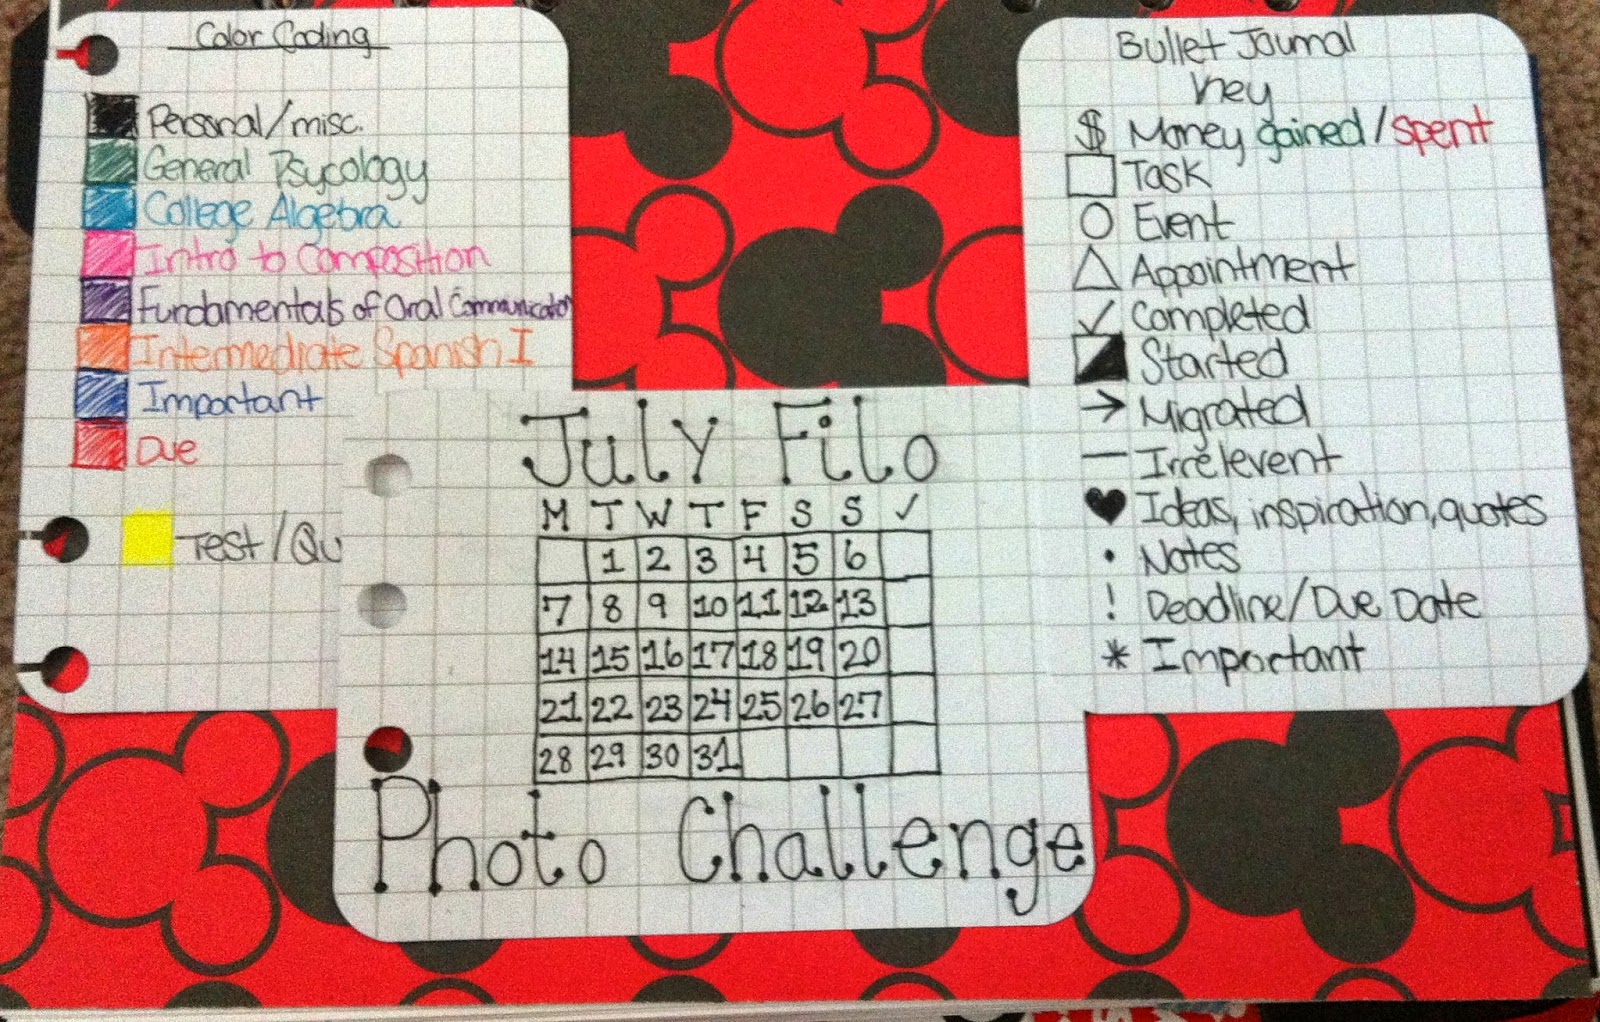 Color Coding
Personal/misc.
General Psycology
College Algebra
Intro to Composition
Fundamentals of Oral Communication
Intermediate Spanish I
Important
Due
Test/Qu
Bullet Journal
Key
$ Money gained/spent
Task
Event
Appointment
✓ Completed
Started
→ Migrated
— Irrelevent
♥ Ideas, inspiration, quotes
• Notes
! Deadline/Due Date
* Important
July Filo
M T W T F S S ✓
1 2 3 4 5 6
7 8 9 10 11 12 13
14 15 16 17 18 19 20
21 22 23 24 25 26 27
28 29 30 31
Photo Challenge